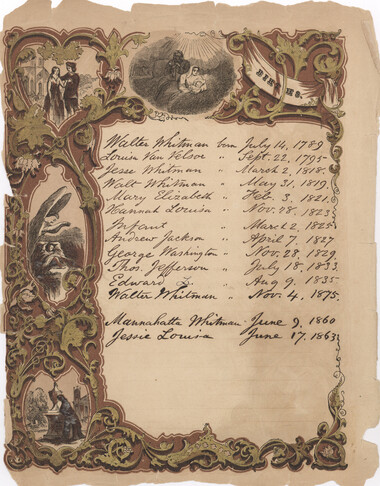 BIRTHS.
Walter Whitman born July 14, 1789
Louisa Van Velsor " Sept. 22, 1795
Jesse Whitman " March 2, 1818.
Walt Whitman " May 31, 1819.
Mary Elizabeth " Feb. 3, 1821.
Hannah Louisa " Nov. 28, 1823
Infant " March 2, 1825
Andrew Jackson " April 7, 1827
George Washington " Nov. 28, 1829
Thos. Jefferson " July 18, 1833
Edward " Aug 9, 1835
Walter Whitman " Nov. 4, 1875.
Mannahatta Whitman June 9, 1860
Jessie Louisa June 17, 1863